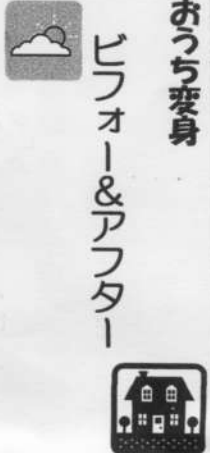 おうち変身
ビフォー&アフター